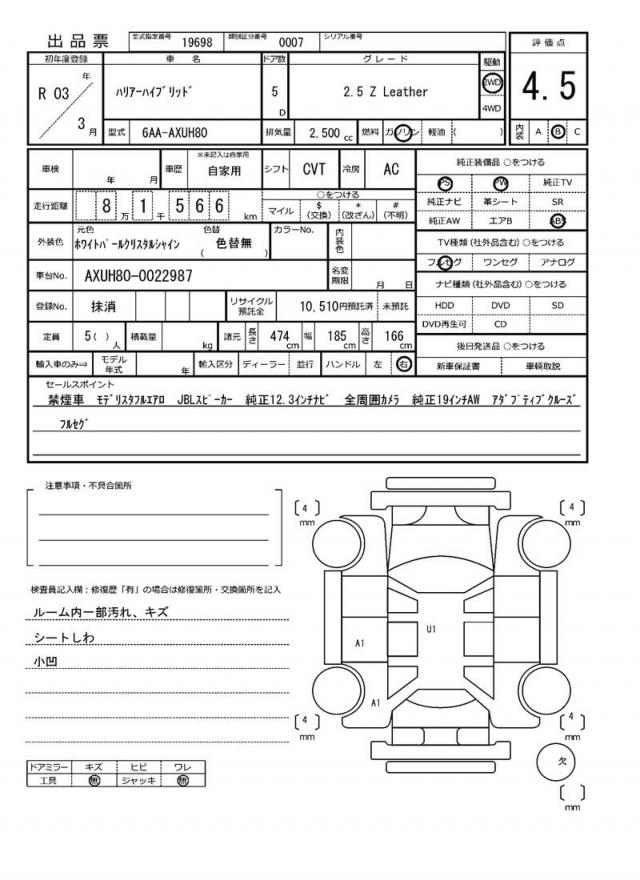 出品票 型式指定番号 19698 類別区分番号 0007 シリアル番号
評価点
4.5
内装 A B C
初年度登録 車名 ドア数 グレード 駆動
R 03 年 3 月 ﾊﾘｱｰﾊｲﾌﾞﾘｯﾄﾞ 5 D 2.5 Z Leather 2WD 4WD
型式 6AA-AXUH80 排気量 2,500 cc 燃料 ガソリン 軽油 ( )
車検 年 月 車歴 ※未記入は自家用 自家用 シフト CVT 冷房 AC
走行距離 8 万 1 千 5 6 6 km ○をつける マイル $ (交換) * (改ざん) # (不明)
外装色 元色 ﾎﾜｲﾄﾊﾟｰﾙｸﾘｽﾀﾙｼｬｲﾝ 色替 ( 色替無 ) カラーNo. 内装色
車台No. AXUH80-0022987 名変期限 月 日
登録No. 抹消 リサイクル預託金 10,510円預託済 未預託
定員 5 ( ) 人 積載量 kg 諸元 長さ 474 cm 幅 185 cm 高さ 166 cm
輸入車のみ⇒ モデル年式 年 輸入区分 ディーラー 並行 ハンドル 左 右
純正装備品 ○をつける
PS PW 純正TV
純正ナビ 革シート SR
純正AW エアB ABS
TV種類(社外品含む)○をつける
フルセグ ワンセグ アナログ
ナビ種類(社外品含む)○をつける
HDD DVD SD
DVD再生可 CD
後日発送品 ○をつける
新車保証書 車輌取説
セールスポイント
禁煙車 ﾓﾃﾞﾘｽﾀﾌﾙｴｱﾛ JBLｽﾋﾟｰｶｰ 純正12.3ｲﾝﾁﾅﾋﾞ 全周囲ｶﾒﾗ 純正19ｲﾝﾁAW ｱﾀﾞﾌﾟﾃｨﾌﾞｸﾙｰｽﾞ
ﾌﾙｾｸﾞ
注意事項・不具合箇所
検査員記入欄：修復歴「有」の場合は修復箇所・交換箇所を記入
ルーム内一部汚れ、キズ
シートしわ
小凹
ドアミラー キズ ヒビ ワレ
工具 無 ジャッキ 無
[ 4 ] mm
[ 4 ] mm
A1
U1
A1
[ 4 ] mm
[ 4 ] mm
欠
[ ] mm